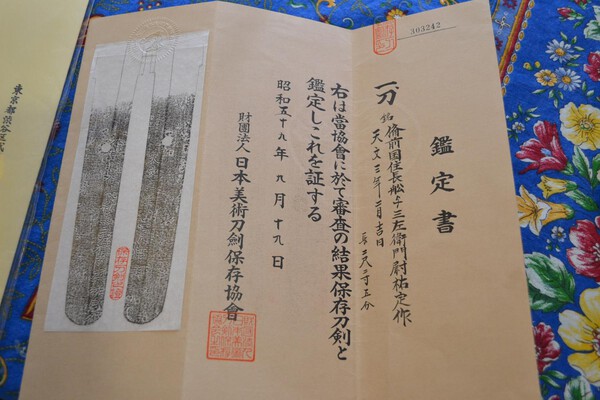 303242
鑑定書
一刀
銘 備前国住長船与三左衛門尉祐定作
天文三年二月吉日
長二尺二寸五分
右は當協會に於て審査の結果保存刀剣と
鑑定しこれを証する
昭和五十九年九月十九日
財團法人 日本美術刀剣保存協會
東京都渋谷区代